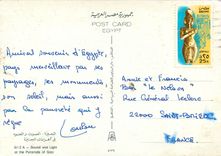 جمهورية مصر العربية
POST CARD
EGYPT
Amical souvenir d'Égypte,
pays merveilleur par ses
paysages, ses monuments
son soleil, mais aussi
par la pauvreté qui y
règne
Annie et Francis
"Le Nelson"
Rue Général Leclerc
22000 SAINT-BRIEUC
FRANCE
Sound and Light
at the Pyramids of Giza